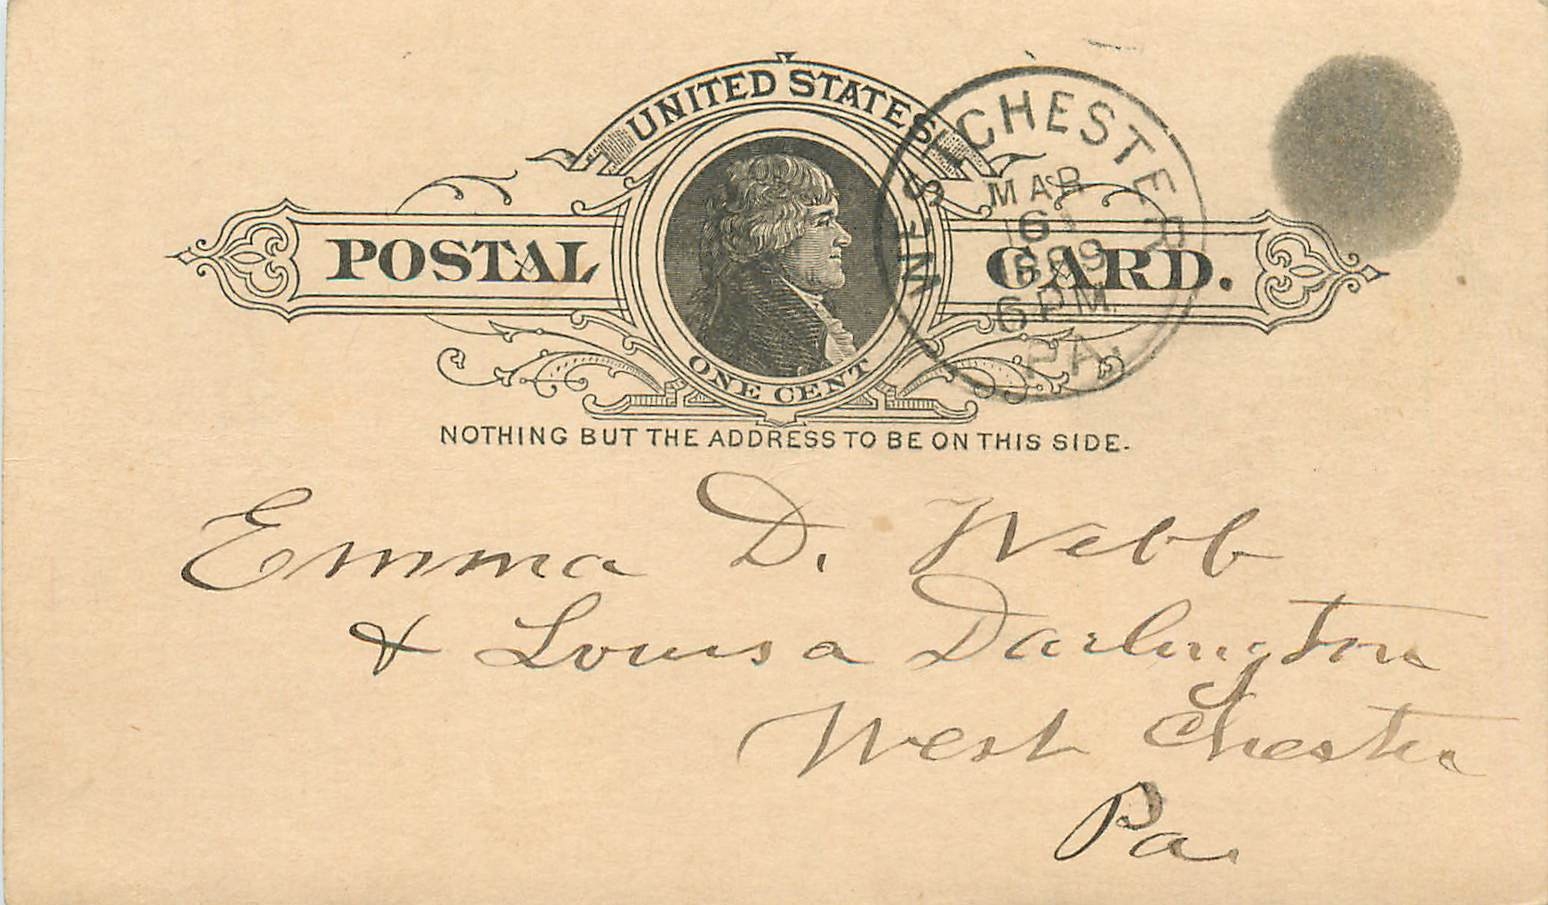 UNITED STATES
POSTAL CARD.
ONE CENT
WEST CHESTER
MAR
6
1889
6 PM
PA.
NOTHING BUT THE ADDRESS TO BE ON THIS SIDE.
Emma D. Webb
& Louisa Darlington
West Chester
Pa.